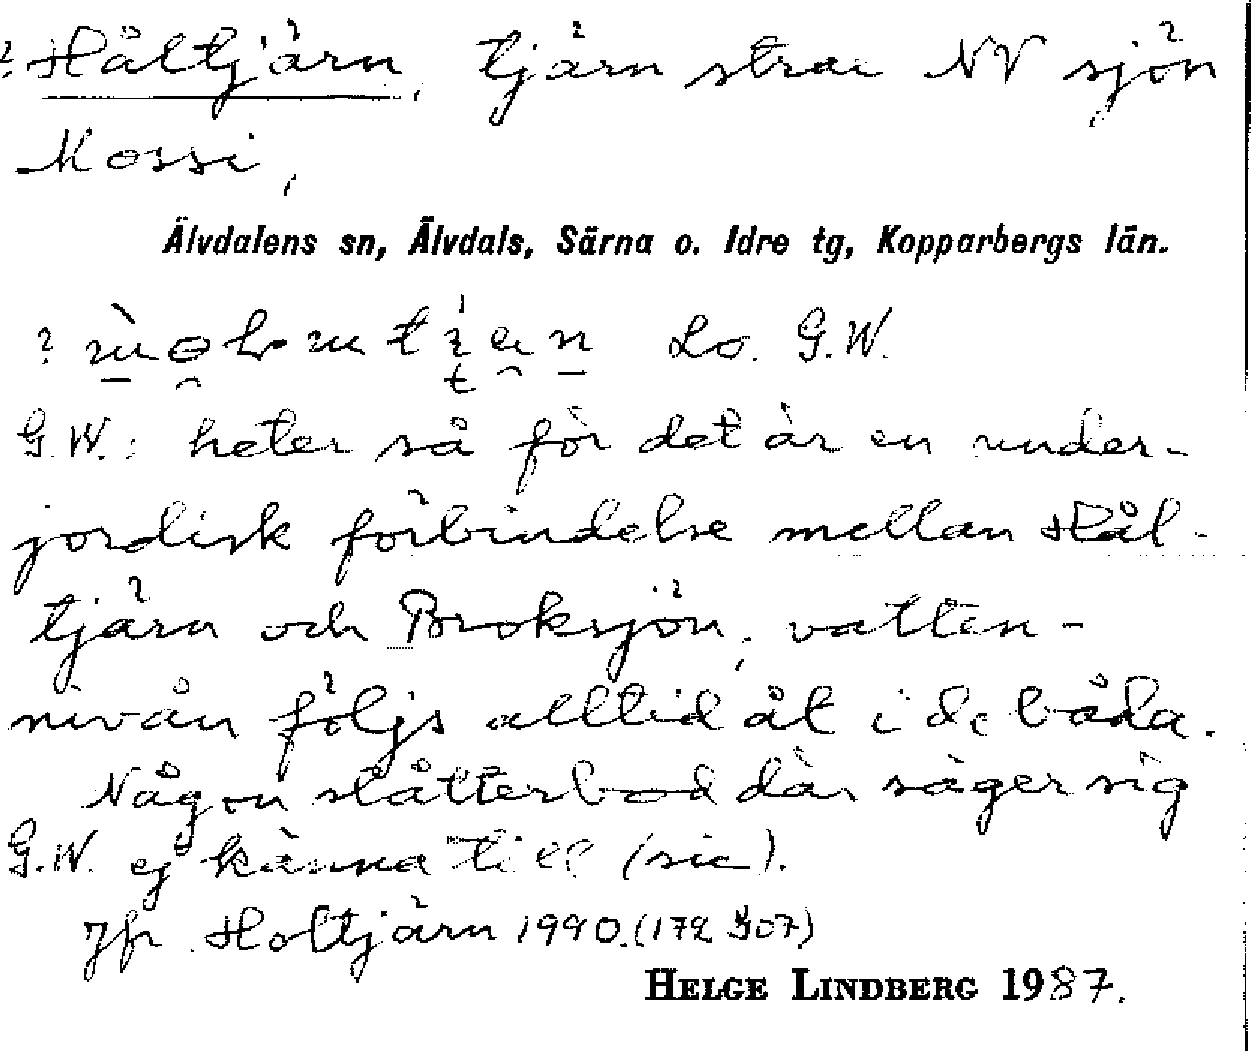 ? Håltjärn, tjärn strax NV sjön
Mossi,
Älvdalens sn, Älvdals, Särna o. Idre tg, Kopparbergs län.
? Lo. G.W.
G.W.: heter så för det är en under-
jordisk förbindelse mellan Hål-
tjärn och Broksjön, vatten-
nivån följs alltid åt i de båda.
Någon slåtterbod där säger sig
G.W. ej känna till (sic).
Jfr Holtjärn 1990. (172 307)
HELGE LINDBERG 1987.